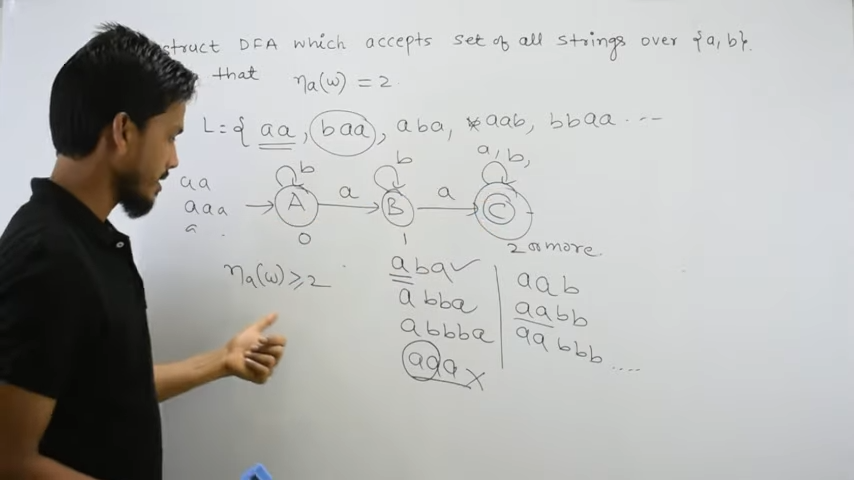 struct DFA which accepts set of all strings over {a, b}.
that na(w) = 2
L = { aa, baa, aba, aab, bbaa ...
b b a, b,
aa
aaa
a
A a B a C
0 1 2 or more.
na(w) ≥ 2
aba ✓
abba
abbba
aaa X
aab
aabb
aabbb ....